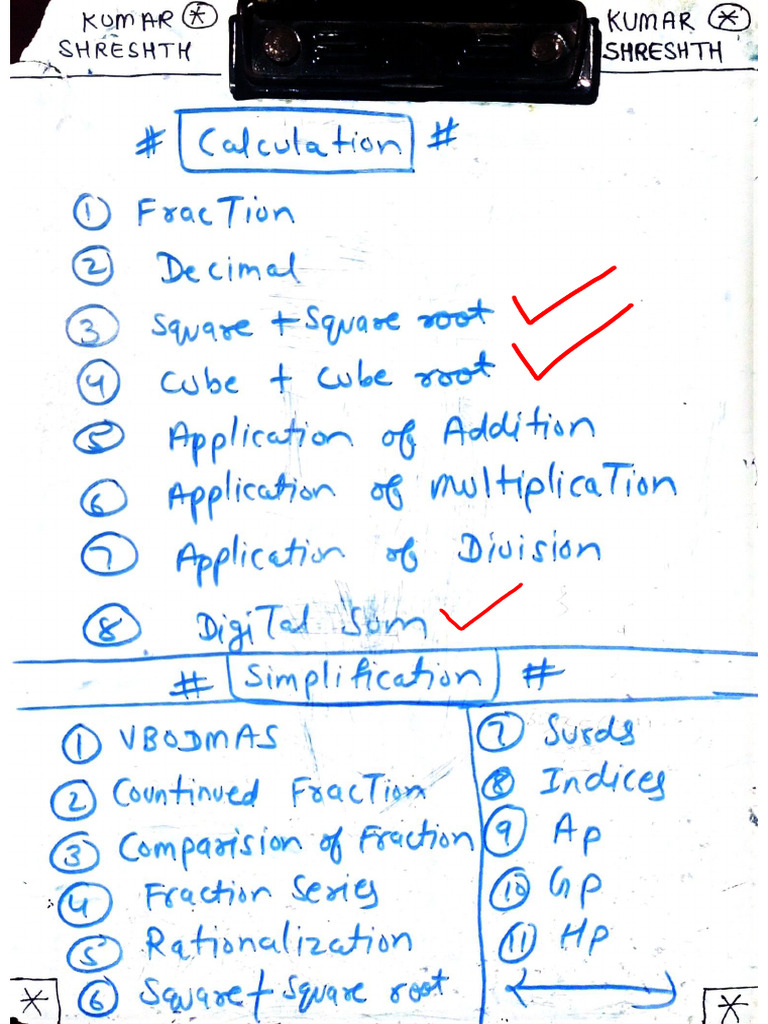 KUMAR
SHRESHTH
KUMAR
SHRESHTH
# Calculation #
① Fraction
② Decimal
③ Square + Square root
④ Cube + Cube root
⑤ Application of Addition
⑥ Application of multiplication
⑦ Application of Division
⑧ Digital Sum
# Simplification #
① VBODMAS
② Countinued Fraction
③ Comparision of Fraction
④ Fraction Series
⑤ Rationalization
⑥ Square + Square root
⑦ Surds
⑧ Indices
⑨ Ap
⑩ Gp
⑪ Hp